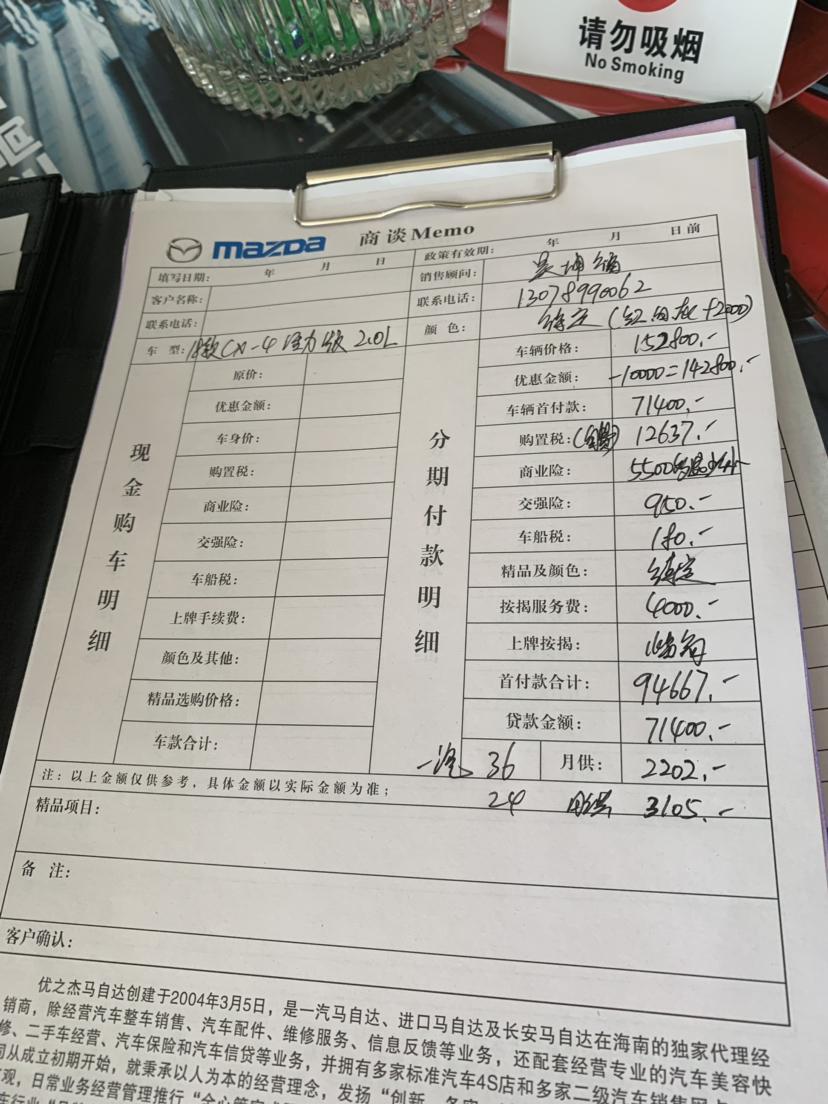 请勿吸烟
No Smoking
mazda 商谈Memo
填写日期: 年 月 日 政策有效期: 年 月 日前
客户名称: 销售顾问:
联系电话: 联系电话: 13078990062
车 型: 18款CX-4 活力版 2.0L 颜 色: 待定 (红 +2000)
现金购车明细
原价:
优惠金额:
车身价:
购置税:
商业险:
交强险:
车船税:
上牌手续费:
颜色及其他:
精品选购价格:
车款合计:
分期付款明细
车辆价格: 152800.-
优惠金额: -10000=142800.-
车辆首付款: 71400.-
购置税: 12637.-
商业险: 5500
交强险: 950.-
车船税: 180.-
精品及颜色: 待定
按揭服务费: 4000.-
上牌按揭:
首付款合计: 94667.-
贷款金额: 71400.-
一汽 36 月供: 2202.-
24 月供 3105.-
注:以上金额仅供参考,具体金额以实际金额为准;
精品项目:
备 注:
客户确认:
优之杰马自达创建于2004年3月5日,是一汽马自达、进口马自达及长安马自达在海南的独家代理经
销商,除经营汽车整车销售、汽车配件、维修服务、信息反馈等业务,还配套经营专业的汽车美容快
修、二手车经营、汽车保险和汽车信贷等业务,并拥有多家标准汽车4S店和多家二级汽车销售网点
司从成立初期开始,就秉承以人为本的经营理念,发扬“创新
观,日常业务经营管理推行“全心